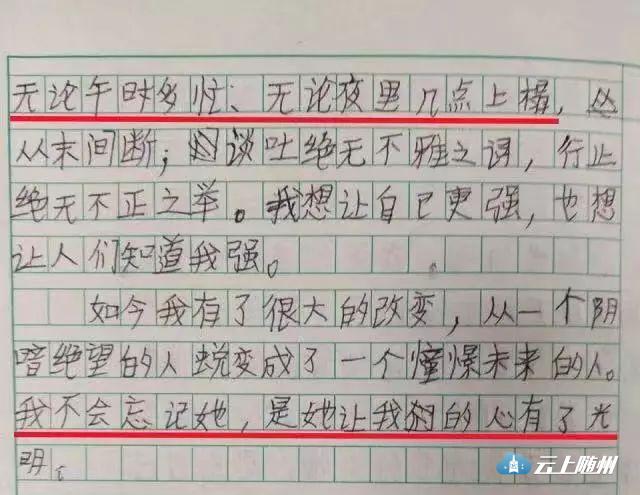 无论午时多忙、无论夜里几点上榻，
从未间断；谈吐绝无不雅之词，行止
绝无不正之举。我想让自已更强，也想
让人们知道我强。
如今我有了很大的改变，从一个阴
暗绝望的人蜕变成了一个憧憬未来的人。
我不会忘记她，是她让我们的心有了光
明。
云上随州